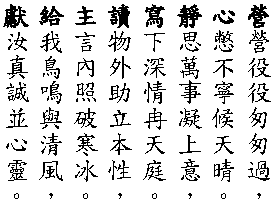 營營役役匆匆過，
心憋不寧候天晴。
靜思萬事凝上意，
寫下深情冉天庭。
讀物外助立本性，
主言內照破寒冰。
給我鳥鳴與清風，
獻汝真誠並心靈。